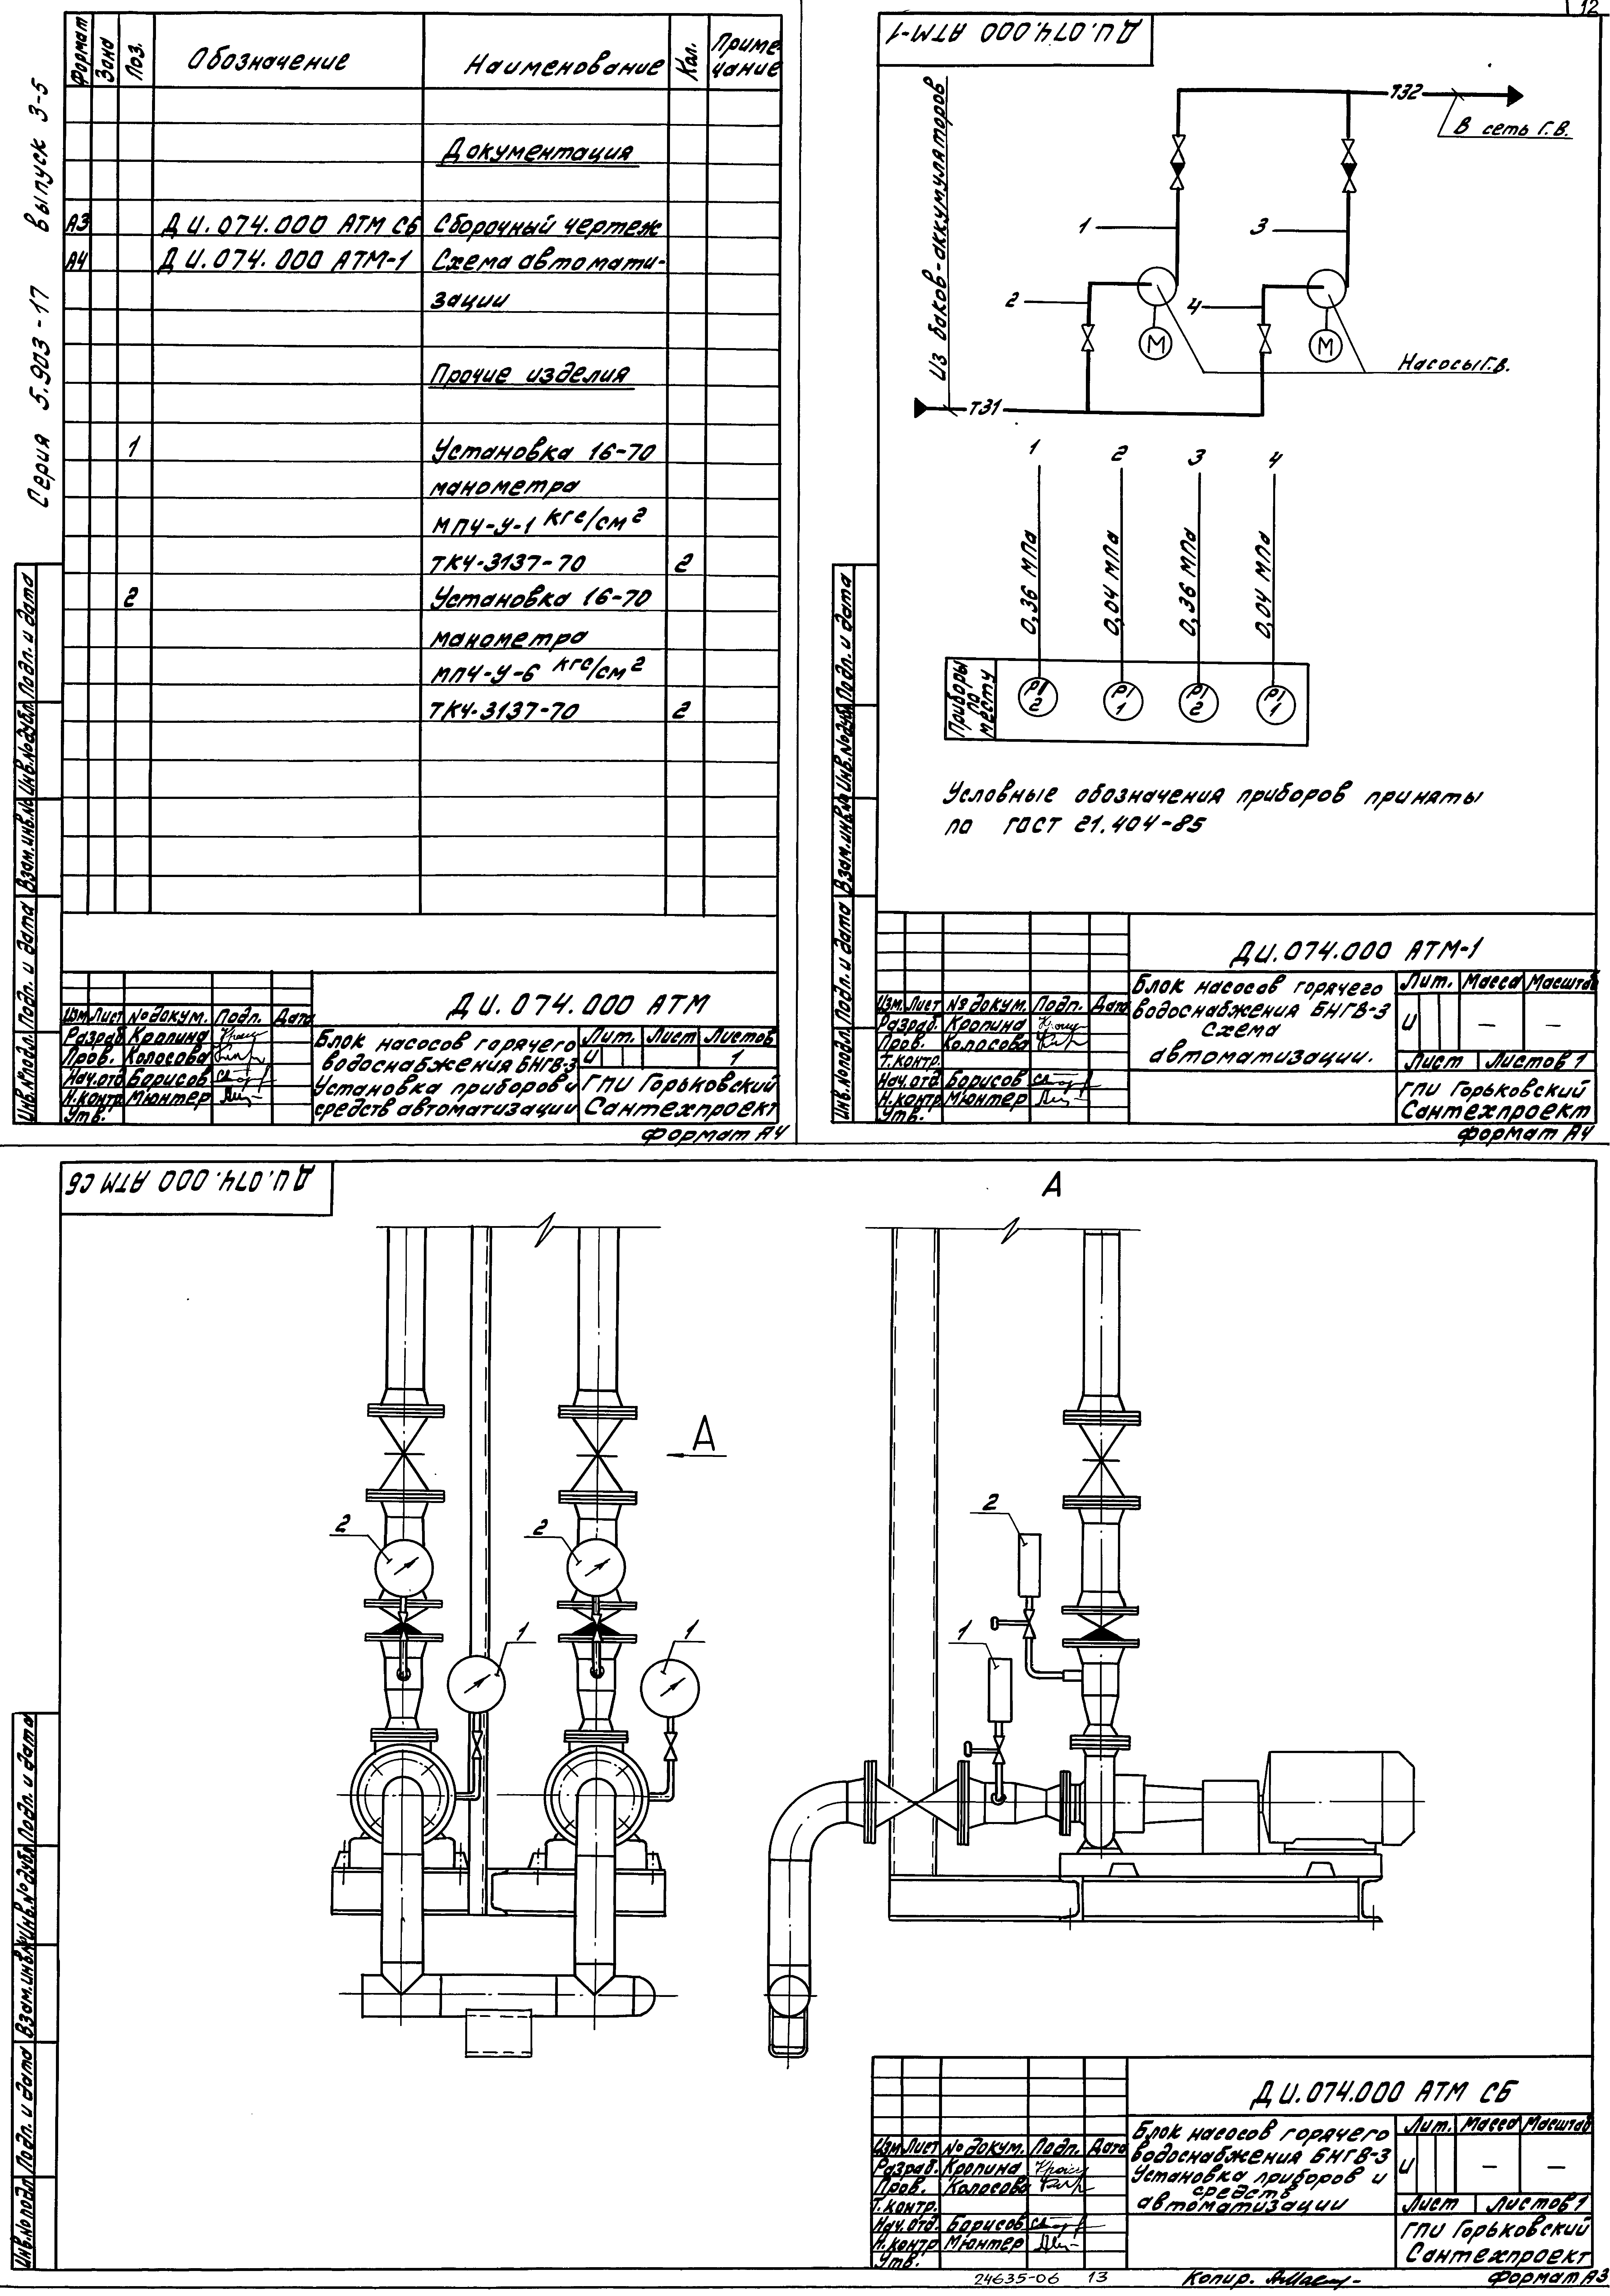 12
Серия 5.903-17 выпуск 3-5
Формат
Зона
Поз.
Обозначение
Наименование
Кол.
Приме-
чание
Документация
А3 ДИ.074.000 АТМ СБ Сборочный чертеж
А4 ДИ.074.000 АТМ-1 Схема автомати-
зации
Прочие изделия
1 Установка 16-70
манометра
МП4-У-1 кгс/см²
ТК4-3137-70 2
2 Установка 16-70
манометра
МП4-У-6 кгс/см²
ТК4-3137-70 2
Инв.№подл. Подп. и дата Взам.инв.№ Инв.№дубл. Подп. и дата
ДИ.074.000 АТМ
Изм. Лист № докум. Подп. Дата
Разраб. Кропина
Пров. Колосова
Нач.отд. Борисов
Н.контр. Мюнтер
Утв.
Блок насосов горячего
водоснабжения БНГВ-3
Установка приборов и
средств автоматизации
Лит. Лист Листов
И 1
ГПИ Горьковский
Сантехпроект
Формат А4
ДИ.074.000 АТМ-1
Из баков-аккумуляторов
Т32
В сеть Г.В.
1
3
2
4
М
М
Насосы Г.В.
Т31
1 2 3 4
0,36 МПа
0,04 МПа
0,36 МПа
0,04 МПа
Приборы
по
месту
PI
2
PI
1
PI
2
PI
1
Условные обозначения приборов приняты
по ГОСТ 21.404-85
Инв.№подл. Подп. и дата Взам.инв.№ Инв.№дубл. Подп. и дата
ДИ.074.000 АТМ-1
Изм. Лист № докум. Подп. Дата
Разраб. Кропина
Пров. Колосова
Т.контр.
Нач.отд. Борисов
Н.контр. Мюнтер
Утв.
Блок насосов горячего
водоснабжения БНГВ-3
Схема
автоматизации.
Лит. Масса Масштаб
И – –
Лист Листов 1
ГПИ Горьковский
Сантехпроект
Формат А4
ДИ.074.000 АТМ СБ
А
А
2
2
1
1
2
1
Инв.№подл. Подп. и дата Взам.инв.№ Инв.№дубл. Подп. и дата
ДИ.074.000 АТМ СБ
Изм. Лист № докум. Подп. Дата
Разраб. Кропина
Пров. Колосова
Т.контр.
Нач.отд. Борисов
Н.контр. Мюнтер
Утв.
Блок насосов горячего
водоснабжения БНГВ-3
Установка приборов и
средств
автоматизации
Лит. Масса Масштаб
И – –
Лист Листов 1
ГПИ Горьковский
Сантехпроект
24635-06 13
Копир.
Формат А3